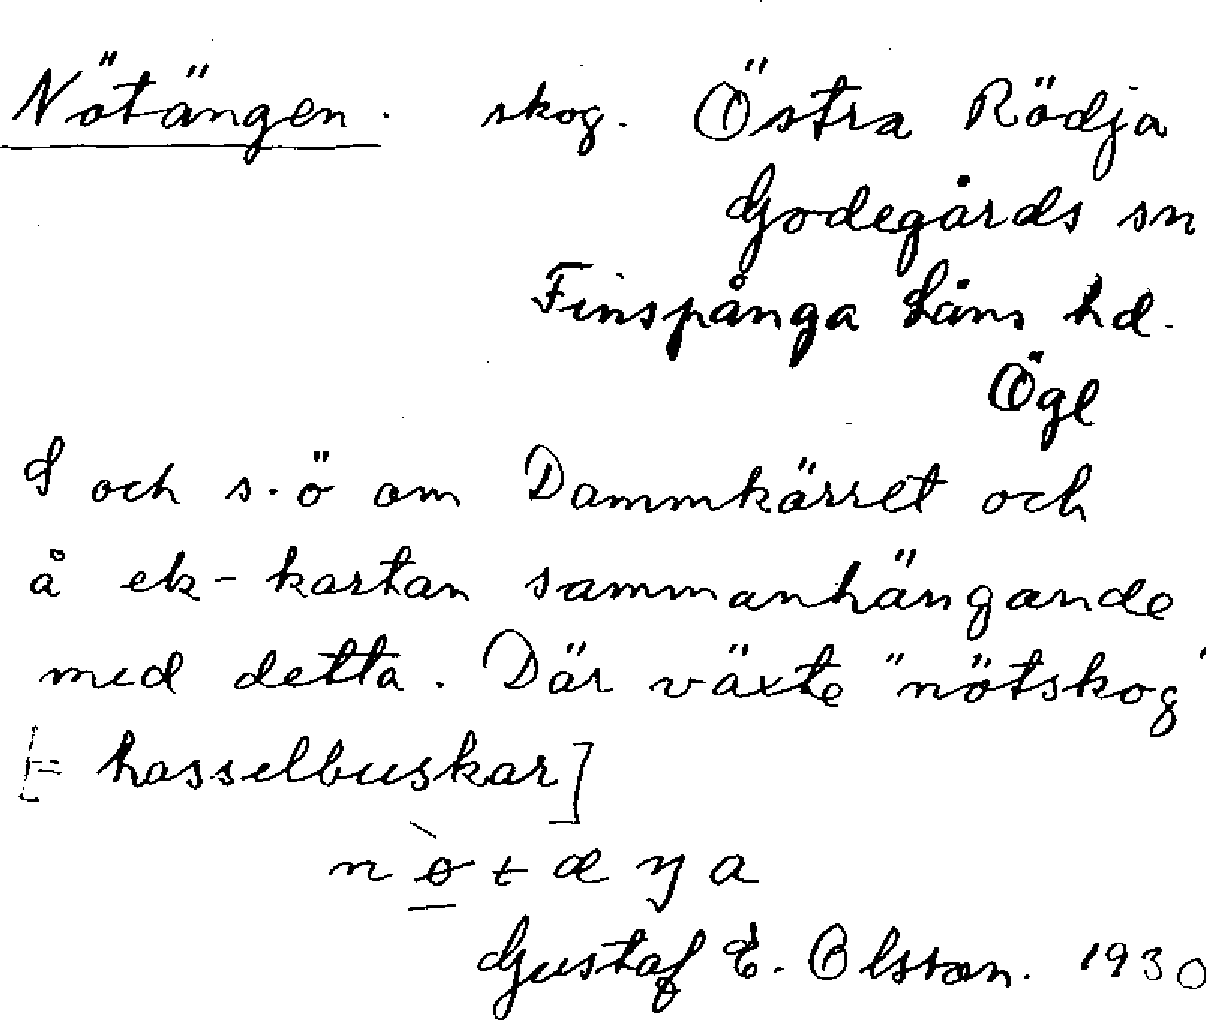 Nötängen. skog. Östra Rödja
Godegårds sn
Finspånga läns hd.
Ögl
S och s.ö om Dammkärret och
å ek-kartan sammanhängande
med detta. Där växte "nötskog"
[= hasselbuskar]
nø̀tæŋa
Gustaf E. Olsson. 1930